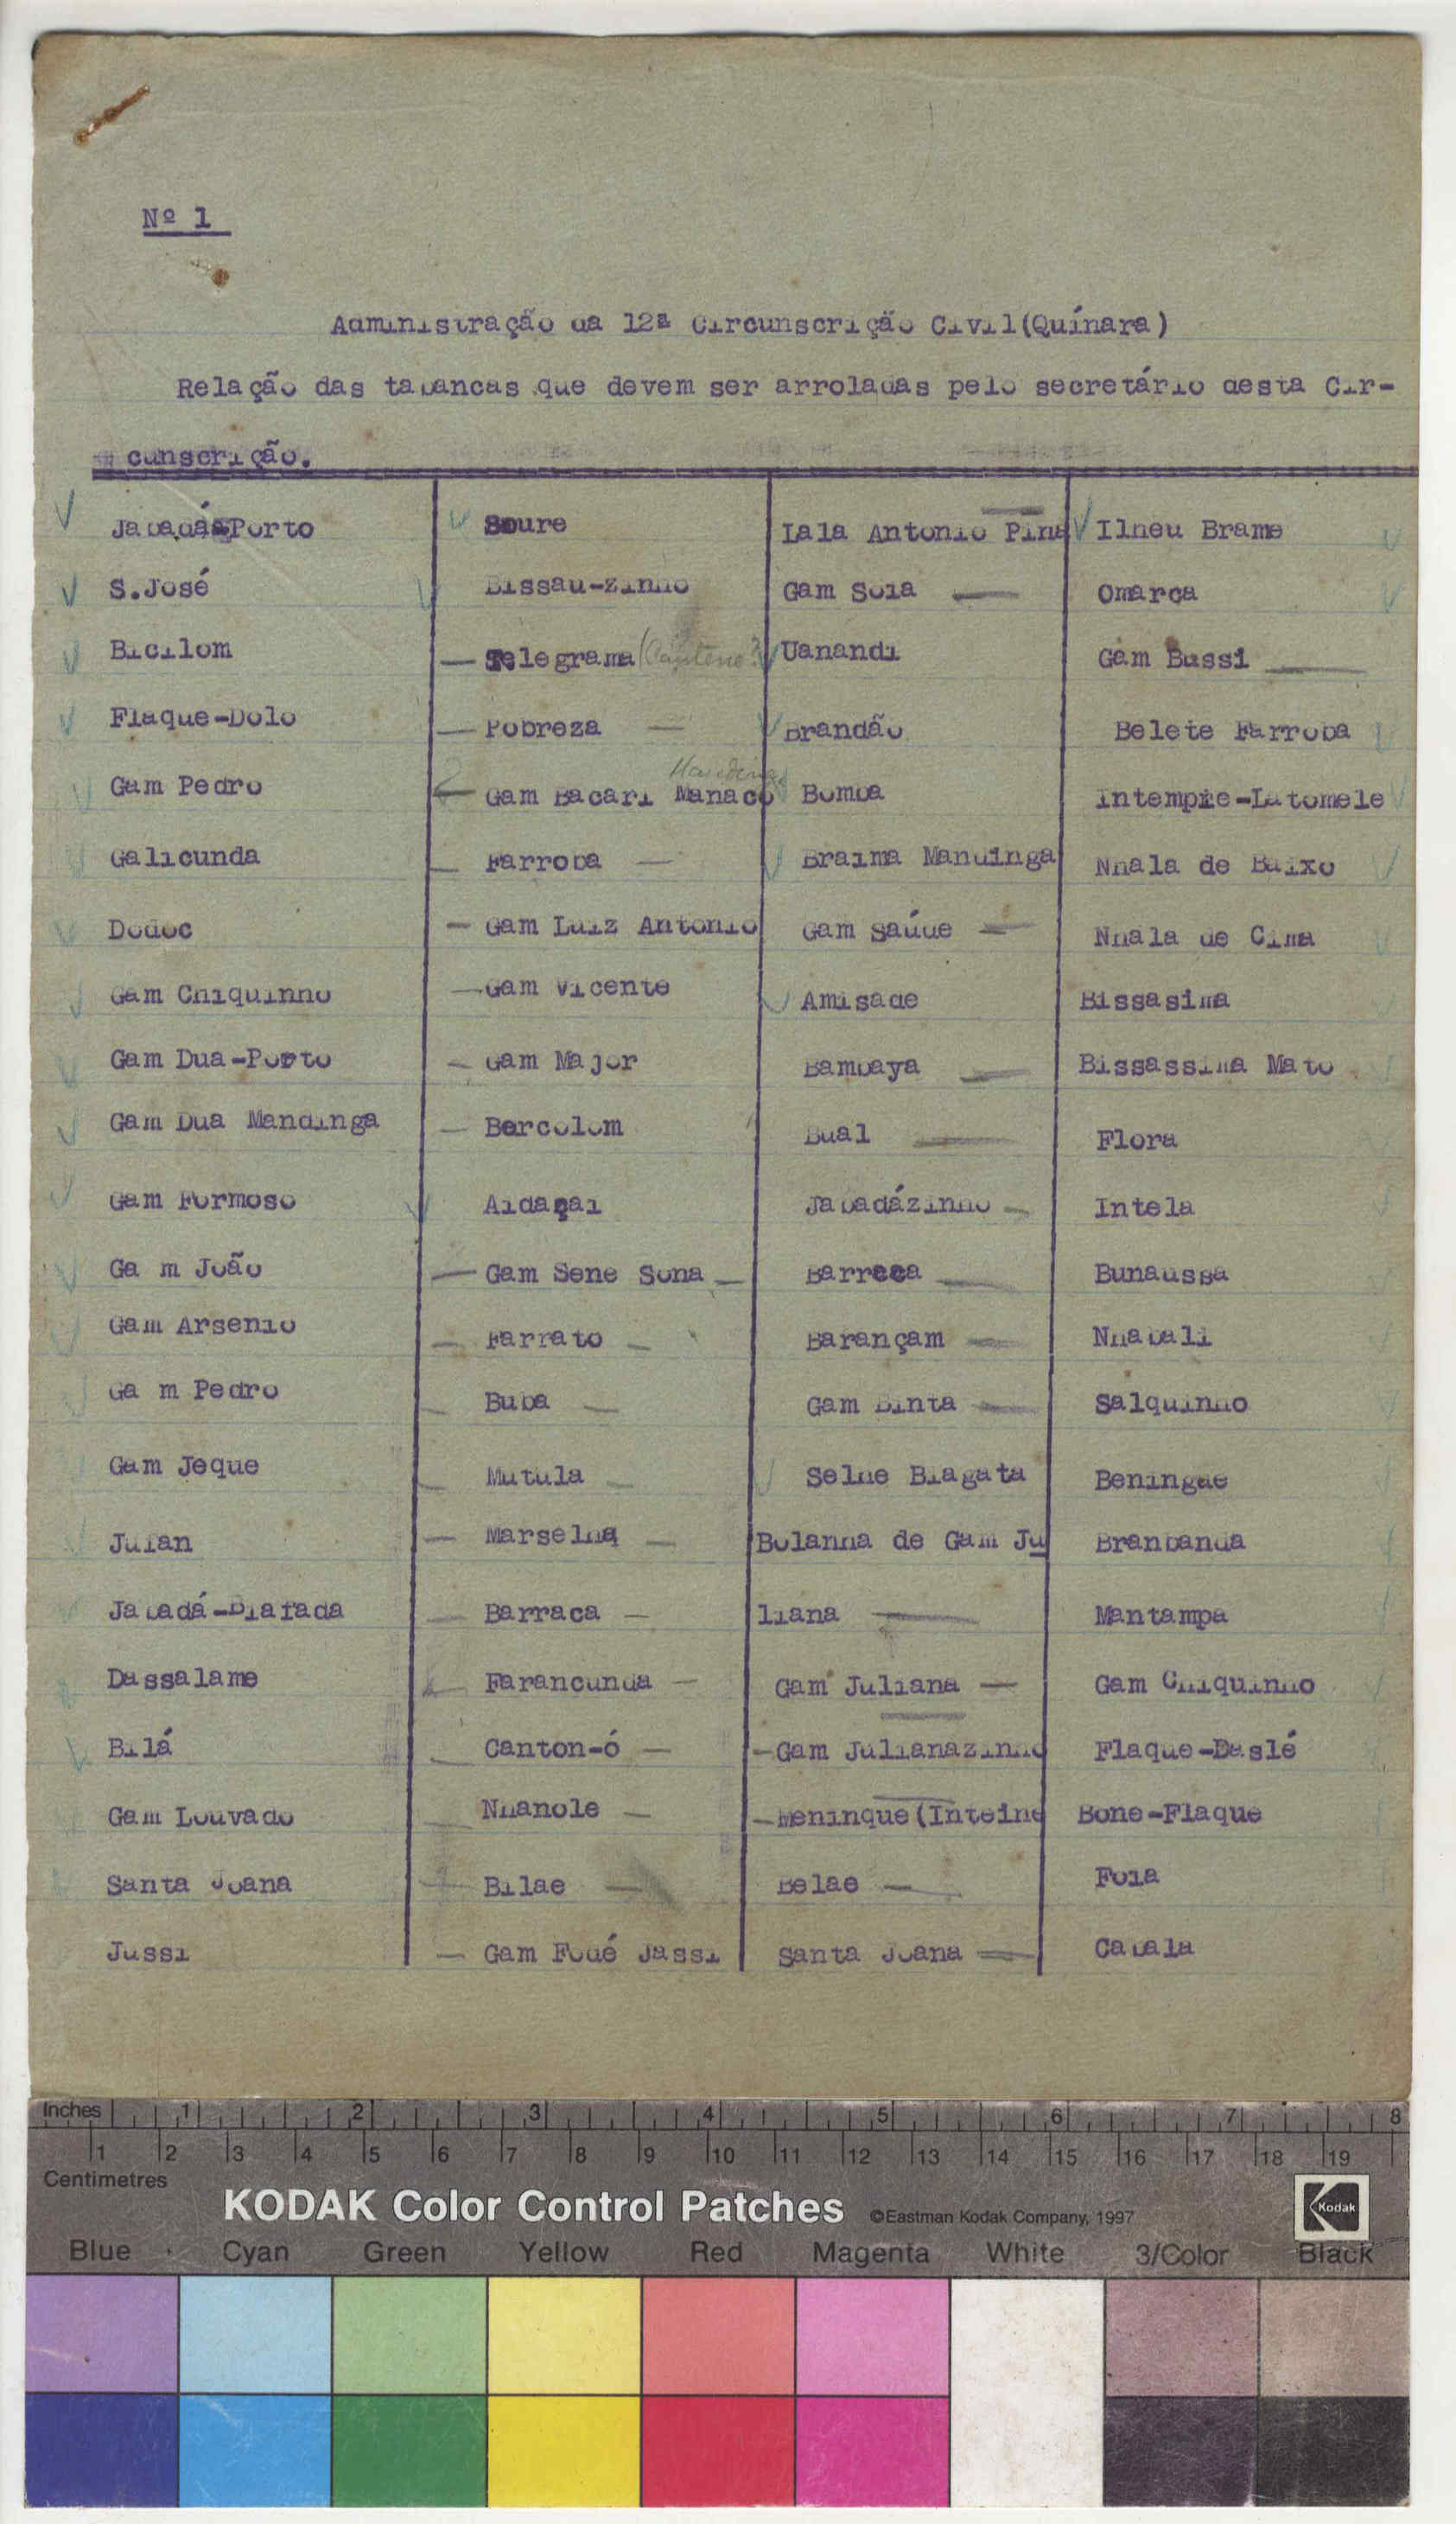 Nº 1
Administração da 12ª Circunscrição Civil(Quínara)
Relação das tabancas que devem ser arroladas pelo secretário desta Cir-
cunscrição.
Jabadá Porto
S.José
Bicilom
Flaque-Dolo
Gam Pedro
Galicunda
Dodoc
Gam Chiquinho
Gam Dua-Porto
Gam Dua Mandinga
Gam Formoso
Ga m João
Gam Arsenio
Ga m Pedro
Gam Jeque
Jufan
Jabadá-Biafada
Dassalame
Bilá
Gam Louvado
Santa Joana
Jussi
Soure
Bissau-zinho
Telegrama
Pobreza
Gam Bacari Manacó
Farroba
Gam Luiz Antonio
Gam Vicente
Gam Major
Bercolom
Aidaçai
Gam Sene Sona
Farrato
Buba
Mutula
Marselha
Barraca
Farancunda
Canton-ó
Nhanole
Bilae
Gam Fodé Jassi
Lala Antonio Pina
Gam Soia
Uanandi
Brandão
Bomba
Braima Mandinga
Gam Saúde
Amisade
Bambaya
Bual
Jabadázinho
Barreca
Barançam
Gam Binta
Selhe Biagata
Bolanha de Gam Ju
liana
Gam Juliana
Gam Julianazinho
Meninque(Inteine
Belae
Santa Joana
Ilheu Brame
Omarca
Gam Bussi
Belete Farroba
Intempie-Latomele
Nhala de Baixo
Nhala de Cima
Bissasima
Bissassima Mato
Flora
Intela
Bunaussa
Nhabali
Salquinho
Beningae
Branbanda
Mantampa
Gam Chiquinho
Flaque-Daslé
Bone-Flaque
Foia
Cabala
Inches 1 2 3 4 5 6 7 8
1 2 3 4 5 6 7 8 9 10 11 12 13 14 15 16 17 18 19
Centimetres
KODAK Color Control Patches ©Eastman Kodak Company, 1997 Kodak
Blue Cyan Green Yellow Red Magenta White 3/Color Black